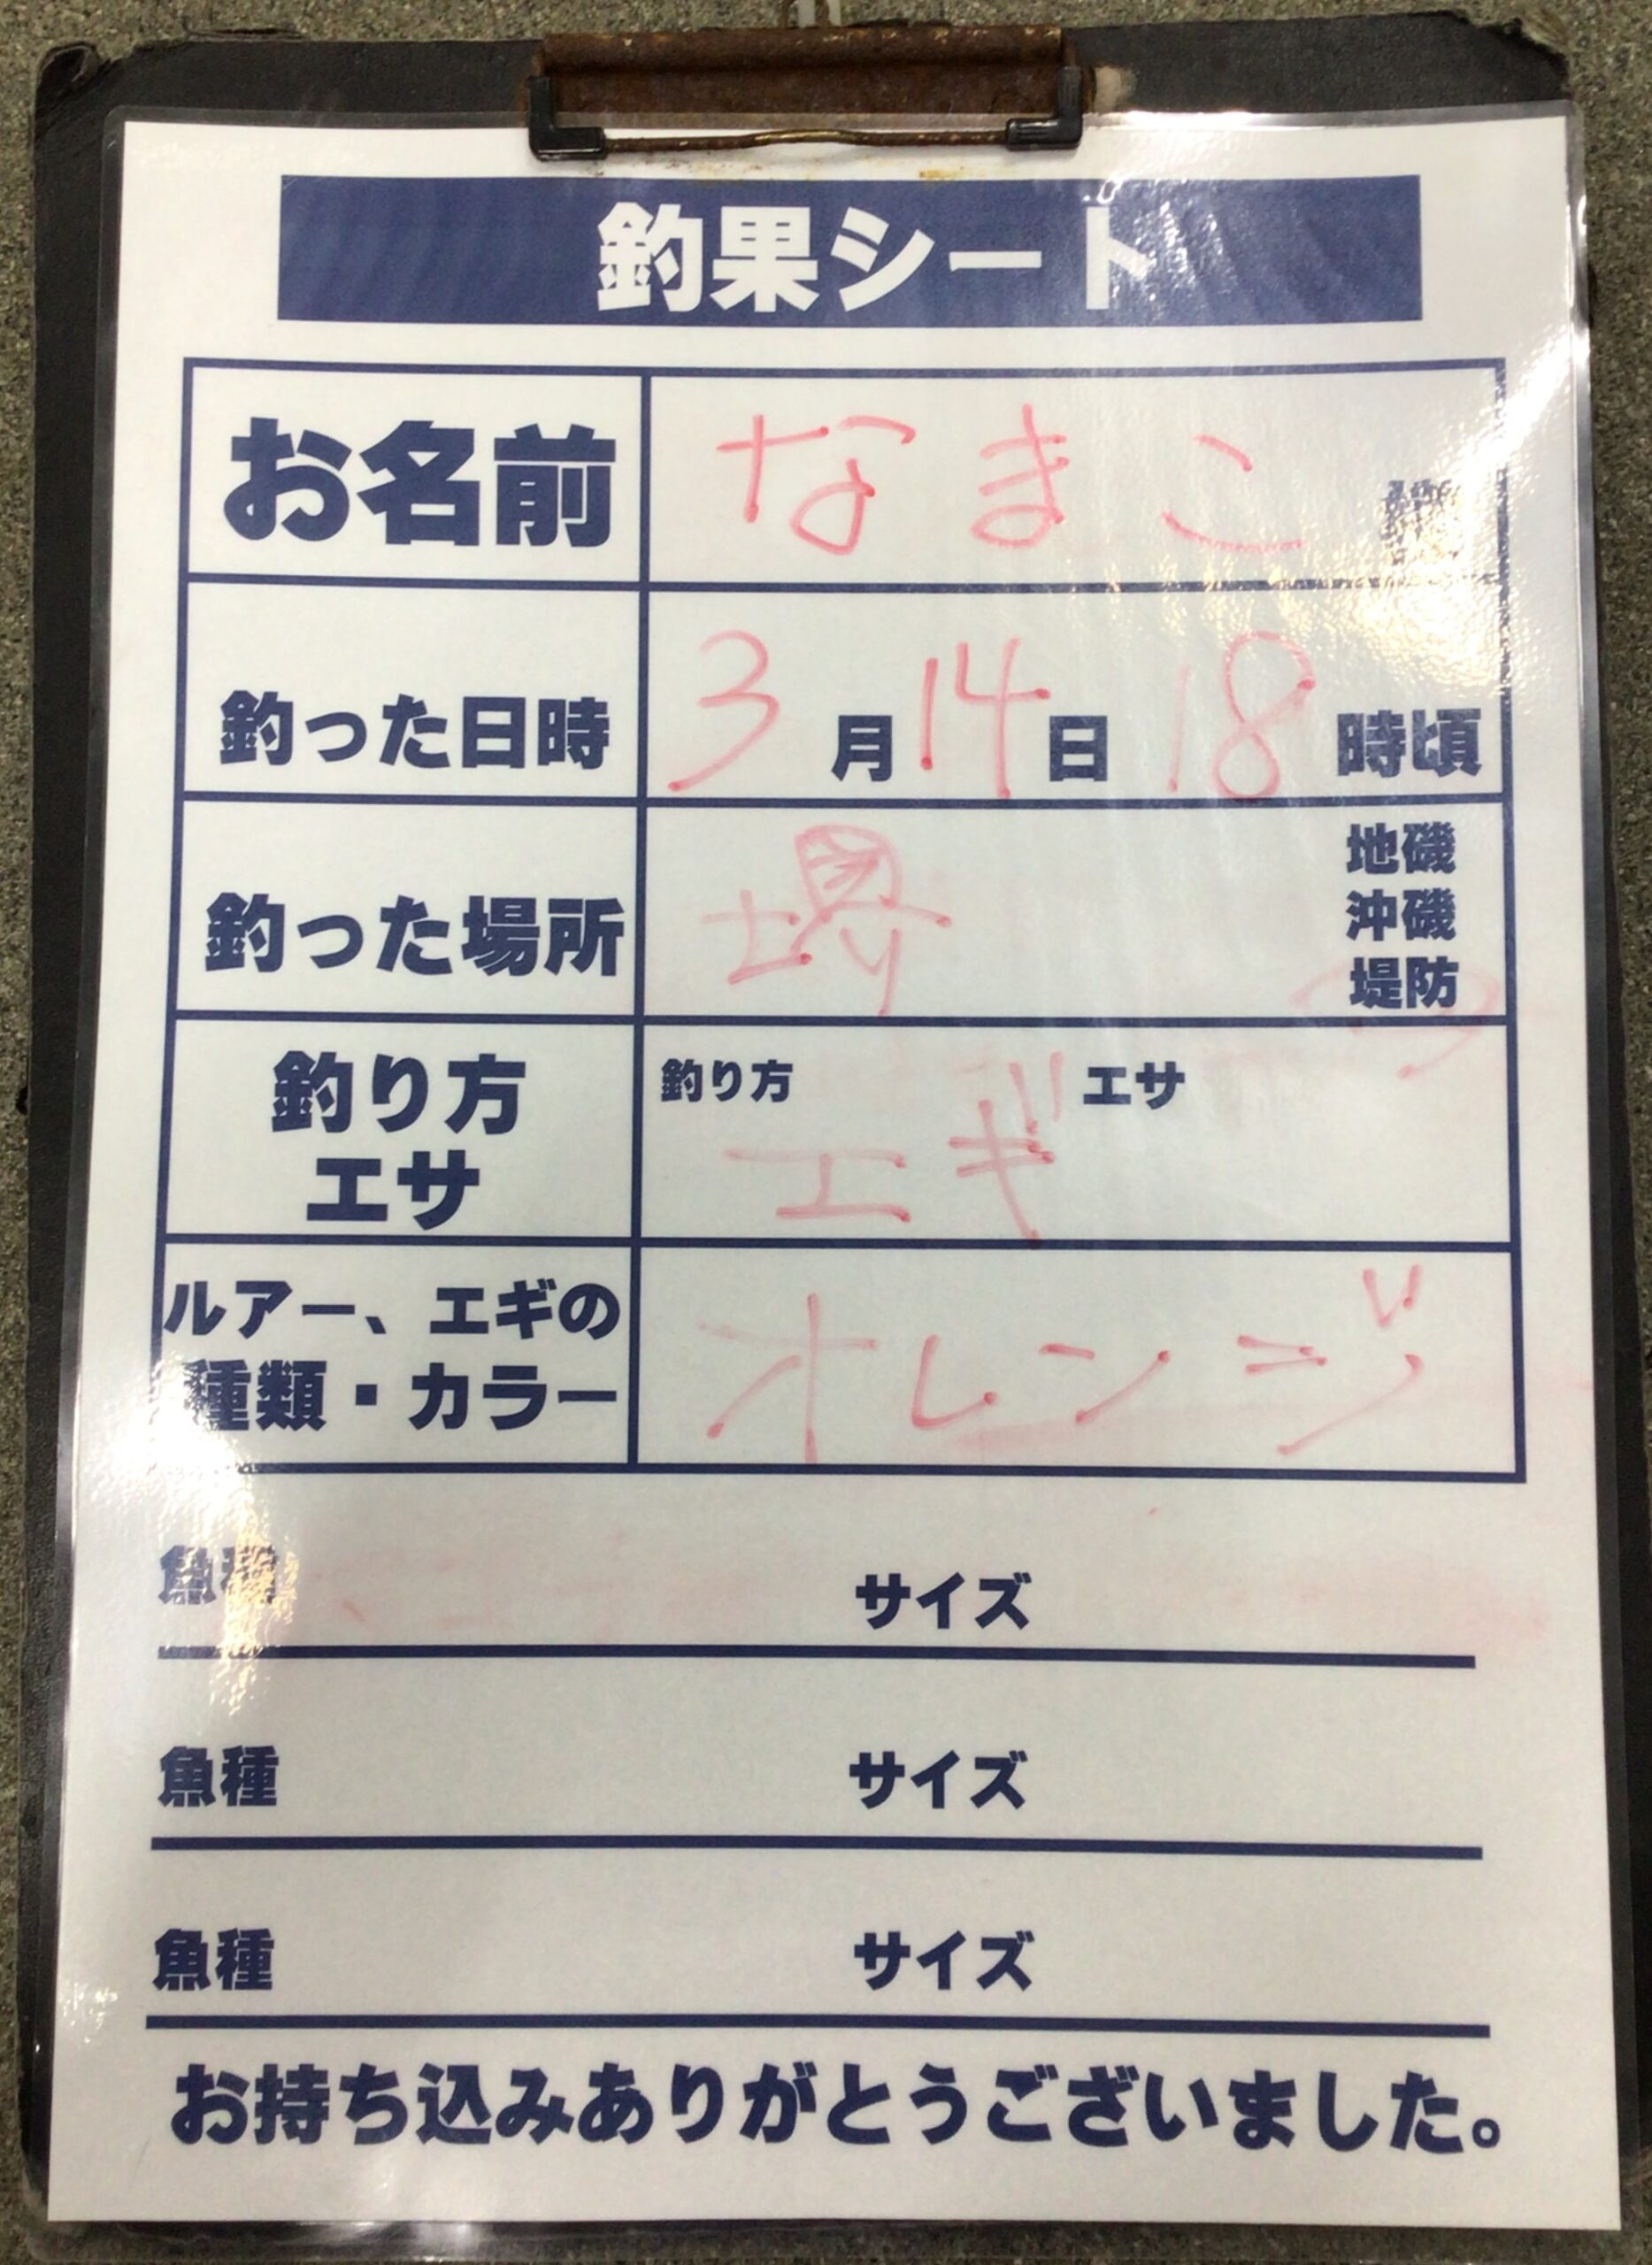 釣果シート
お名前 なまこ 様
釣った日時 3月14日 18時頃
釣った場所 堺 地磯
沖磯
堤防
釣り方
エサ
釣り方 エギ エサ
ルアー、エギの
種類・カラー
オレンジ
魚種 サイズ
魚種 サイズ
魚種 サイズ
お持ち込みありがとうございました。